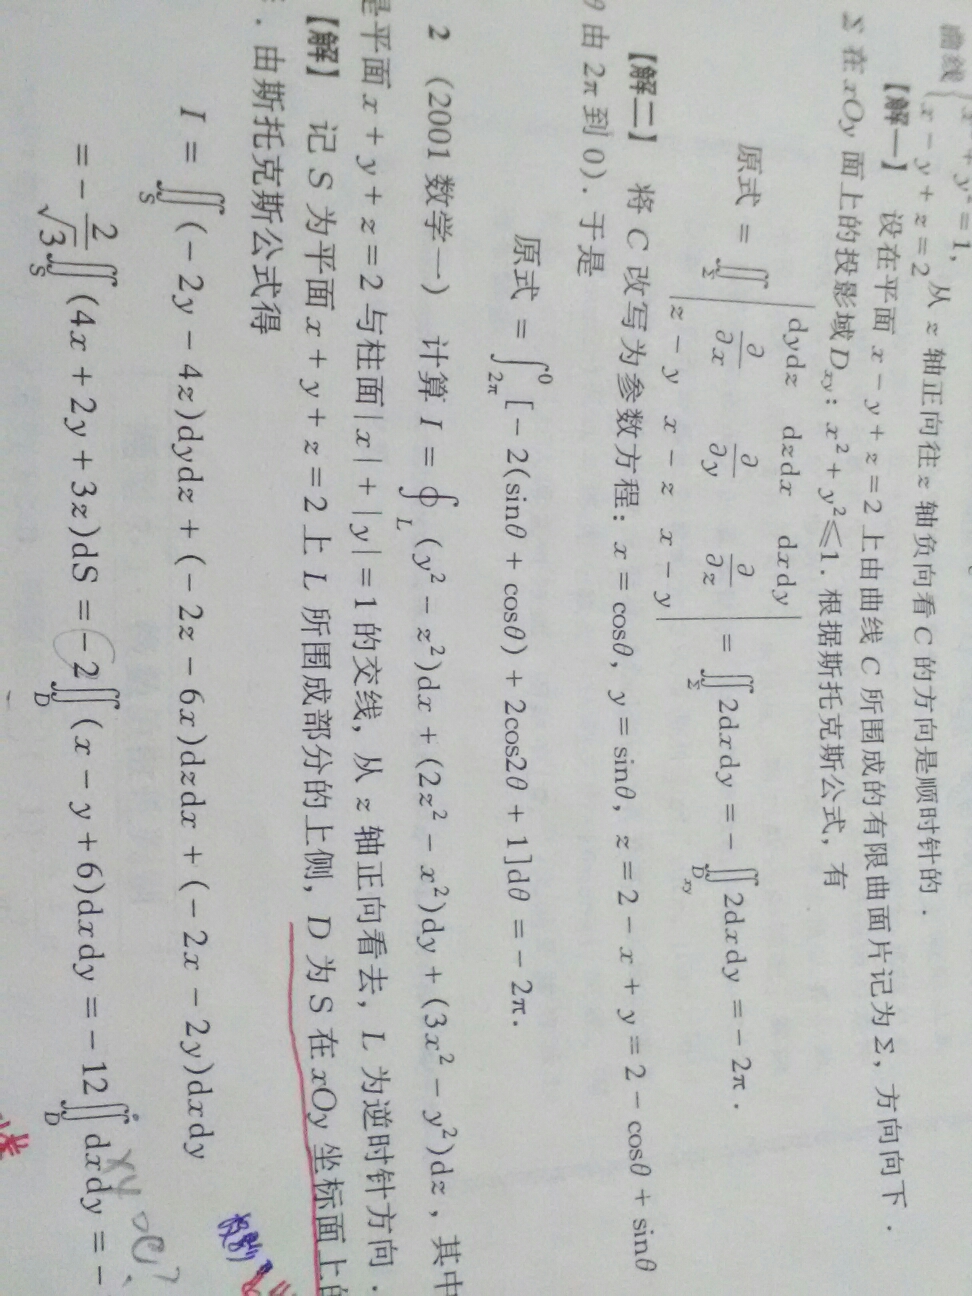 曲线 { x² + y² = 1, x − y + z = 2 从 z 轴正向往 z 轴负向看 C 的方向是顺时针的.
【解一】 设在平面 x − y + z = 2 上由曲线 C 所围成的有限曲面片记为 Σ, 方向向下.
Σ 在 xOy 面上的投影域 Dxy: x² + y² ≤ 1. 根据斯托克斯公式, 有
原式 = ∬_Σ | dydz dzdx dxdy ; ∂/∂x ∂/∂y ∂/∂z ; z − y x − z x − y | = ∬_Σ 2dxdy = − ∬_Dxy 2dxdy = − 2π.
【解二】 将 C 改写为参数方程: x = cosθ, y = sinθ, z = 2 − x + y = 2 − cosθ + sinθ
θ 由 2π 到 0). 于是
原式 = ∫_{2π}^{0} [ − 2(sinθ + cosθ) + 2cos2θ + 1]dθ = − 2π.
2 (2001 数学一) 计算 I = ∮_L (y² − z²)dx + (2z² − x²)dy + (3x² − y²)dz, 其中
是平面 x + y + z = 2 与柱面|x| + |y| = 1 的交线, 从 z 轴正向看去, L 为逆时针方向.
【解】 记 S 为平面 x + y + z = 2 上 L 所围成部分的上侧, D 为 S 在 xOy 坐标面上的
. 由斯托克斯公式得
I = ∬_S (− 2y − 4z)dydz + (− 2z − 6x)dzdx + (− 2x − 2y)dxdy
= − 2/√3 ∬_S (4x + 2y + 3z)dS = − 2 ∬_D (x − y + 6)dxdy = − 12 ∬_D dxdy = −